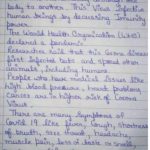 body to another. This Virus infective
human beings by decreasing Immunity
power.
The World Health Organization (WHO)
declared a pandemic.
Researcher said that this Corona disease
first infected bats and spread other
animals, including humans.
People who have medical issue like
high blood pressure, heart problems
cancer are in higher risk of Corona
Virus.
There are many symptoms of
Covid 19 like fever, cough, Shortness
of breath, sore throat, headache,
muscle pain, loss of taste or smell